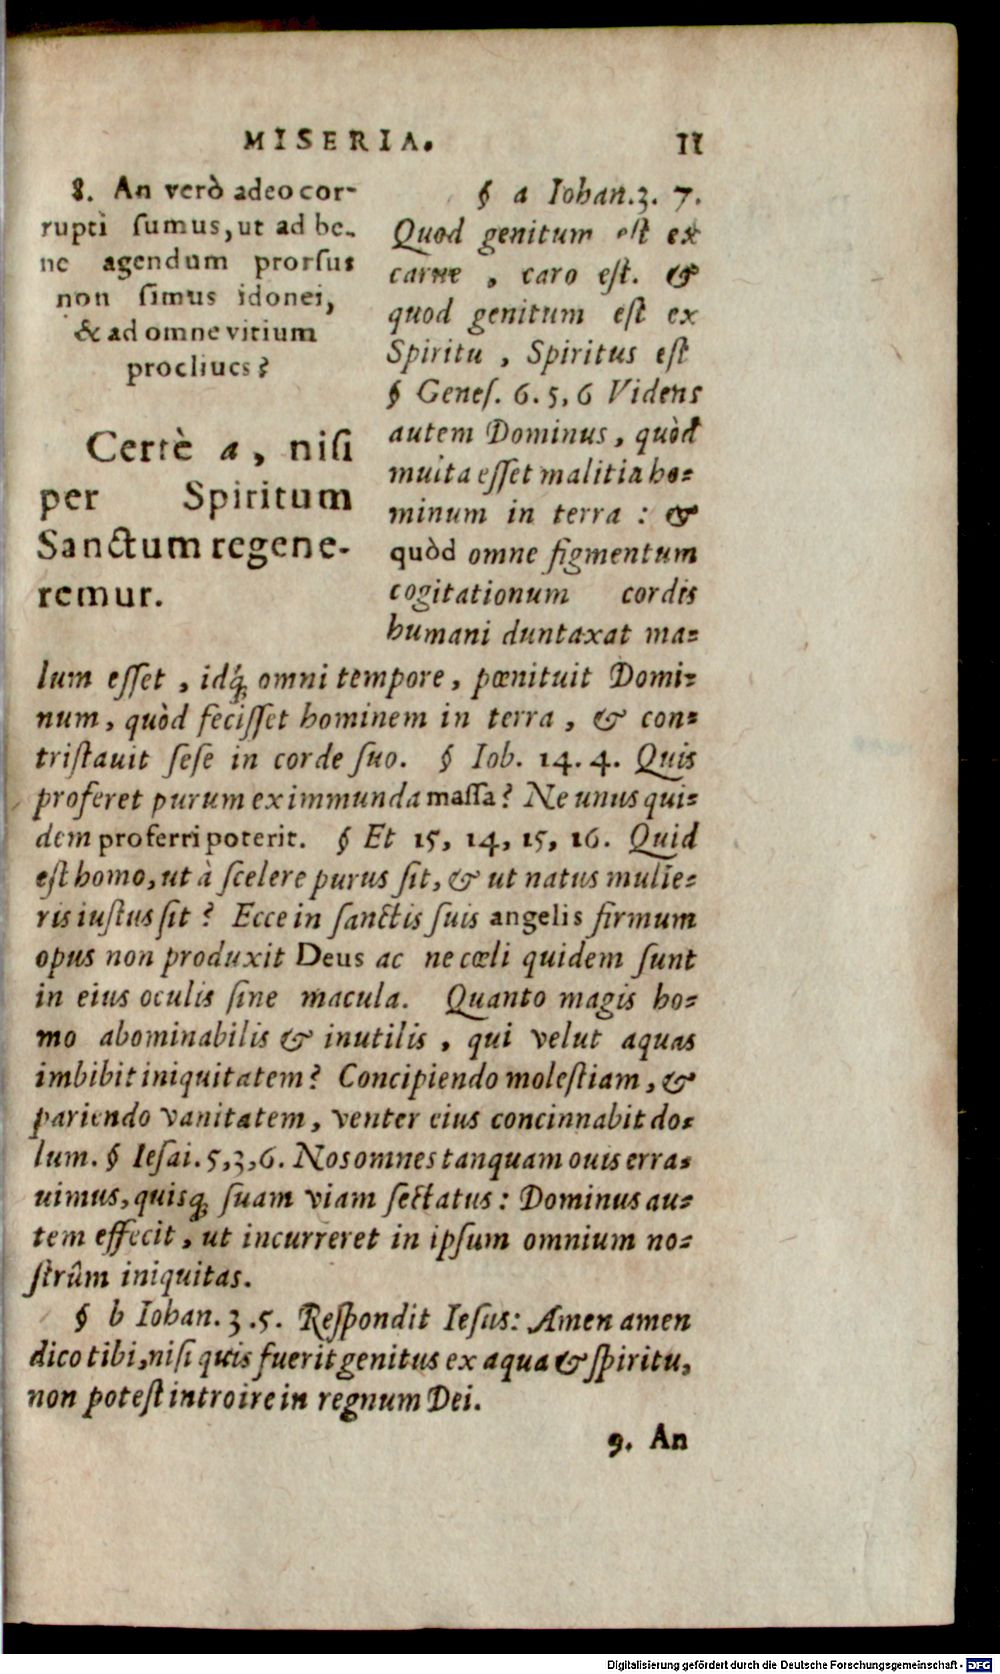 MISERIA. 11
8. An verò adeo cor-
rupti ſumus, ut ad be-
ne agendum prorſus
non ſimus idonei,
& ad omne vitium
proclives?
Certè a, niſi
per Spiritum
Sanctum regene-
remur.
§ a Iohan. 3. 7.
Quod genitum eſt ex
carne, caro eſt. &
quod genitum eſt ex
Spiritu, Spiritus eſt
§ Geneſ. 6. 5, 6 Videns
autem Dominus, quòd
multa eſſet malitia ho-
minum in terra: &
quòd omne figmentum
cogitationum cordis
humani duntaxat ma-
lum eſſet, idq́; omni tempore, pœnituit Domi-
num, quòd feciſſet hominem in terra, & con-
triſtauit ſeſe in corde ſuo. § Iob. 14. 4. Quis
proferet purum ex immunda maſſa? Ne unus qui-
dem proferri poterit. § Et 15, 14, 15, 16. Quid
eſt homo, ut à ſcelere purus ſit, & ut natus mulie-
ris iuſtus ſit? Ecce in ſanctis ſuis angelis firmum
opus non produxit Deus ac ne cœli quidem ſunt
in eius oculis ſine macula. Quanto magis ho-
mo abominabilis & inutilis, qui velut aquas
imbibit iniquitatem? Concipiendo moleſtiam, &
pariendo vanitatem, venter eius concinnabit do-
lum. § Ieſai. 5,3,6. Nos omnes tanquam ouis erra-
uimus, quisq; ſuam viam ſectatus: Dominus au-
tem effecit, ut incurreret in ipſum omnium no-
ſtrûm iniquitas.
§ b Iohan. 3. 5. Reſpondit Ieſus: Amen amen
dico tibi, niſi quis fuerit genitus ex aqua & ſpiritu,
non poteſt introire in regnum Dei.
9. An
Digitalisierung gefördert durch die Deutsche Forschungsgemeinschaft - DFG